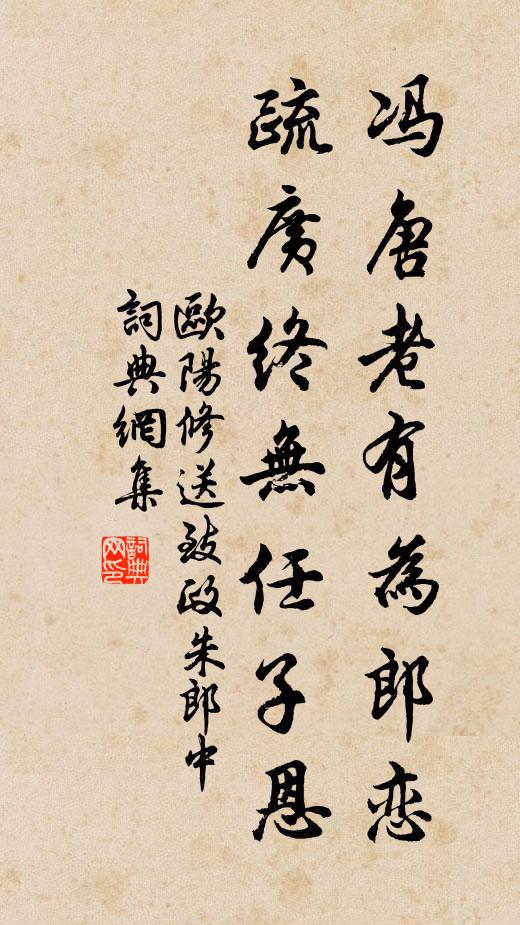 冯唐老有為郎恋
疏廣終無任子恩
歐陽修送致政朱郎中
詞典網集
詞典網印